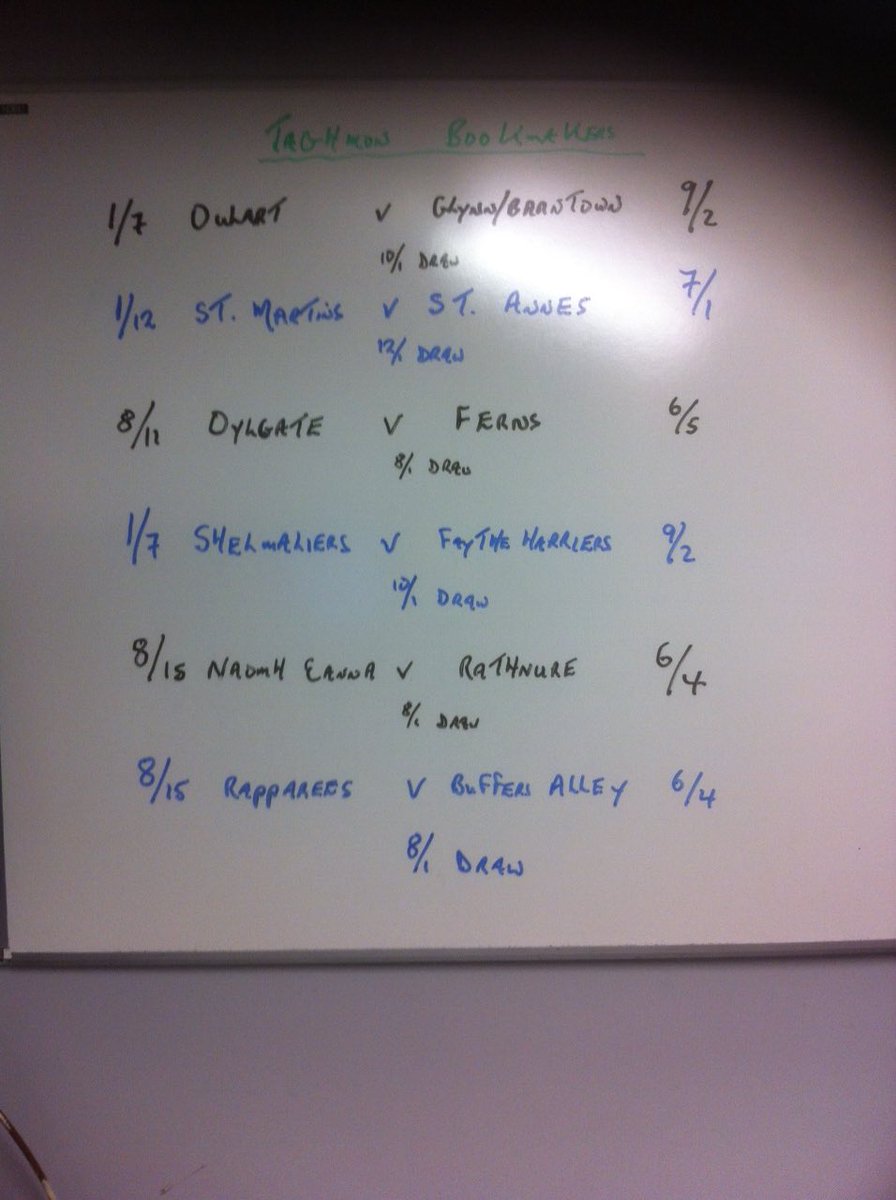 TAGHMON BOOKMAKERS
1/7 OULART V GLYNN/BARNTOWN 9/2
10/1 DRAW
1/12 ST. MARTINS V ST. ANNES 7/1
12/1 DRAW
8/11 OYLGATE V FERNS 6/5
8/1 DRAW
1/7 SHELMALIERS V FAYTHE HARRIERS 9/2
10/1 DRAW
8/15 NAOMH EANNA V RATHNURE 6/4
8/1 DRAW
8/15 RAPPAREES V BUFFERS ALLEY 6/4
8/1 DRAW